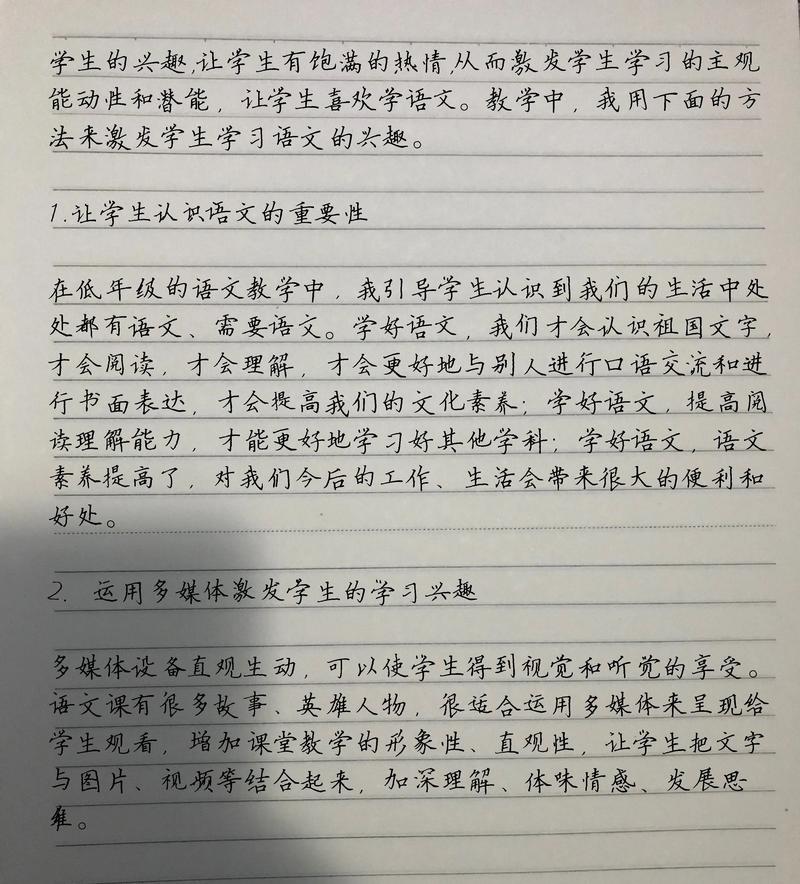 学生的兴趣,让学生有饱满的热情,从而激发学生学习的主观
能动性和潜能，让学生喜欢学语文。教学中，我用下面的方
法来激发学生学习语文的兴趣。
1.让学生认识语文的重要性
在低年级的语文教学中，我引导学生认识到我们的生活中处
处都有语文、需要语文。学好语文，我们才会认识祖国文字，
才会阅读，才会理解，才会更好地与别人进行口语交流和进
行书面表达，才会提高我们的文化素养；学好语文，提高阅
读理解能力，才能更好地学习好其他学科；学好语文，语文
素养提高了，对我们今后的工作、生活会带来很大的便利和
好处。
2. 运用多媒体激发学生的学习兴趣
多媒体设备直观生动，可以使学生得到视觉和听觉的享受。
语文课有很多故事、英雄人物，很适合运用多媒体来呈现给
学生观看，增加课堂教学的形象性、直观性，让学生把文字
与图片、视频等结合起来，加深理解、体味情感、发展思
维。